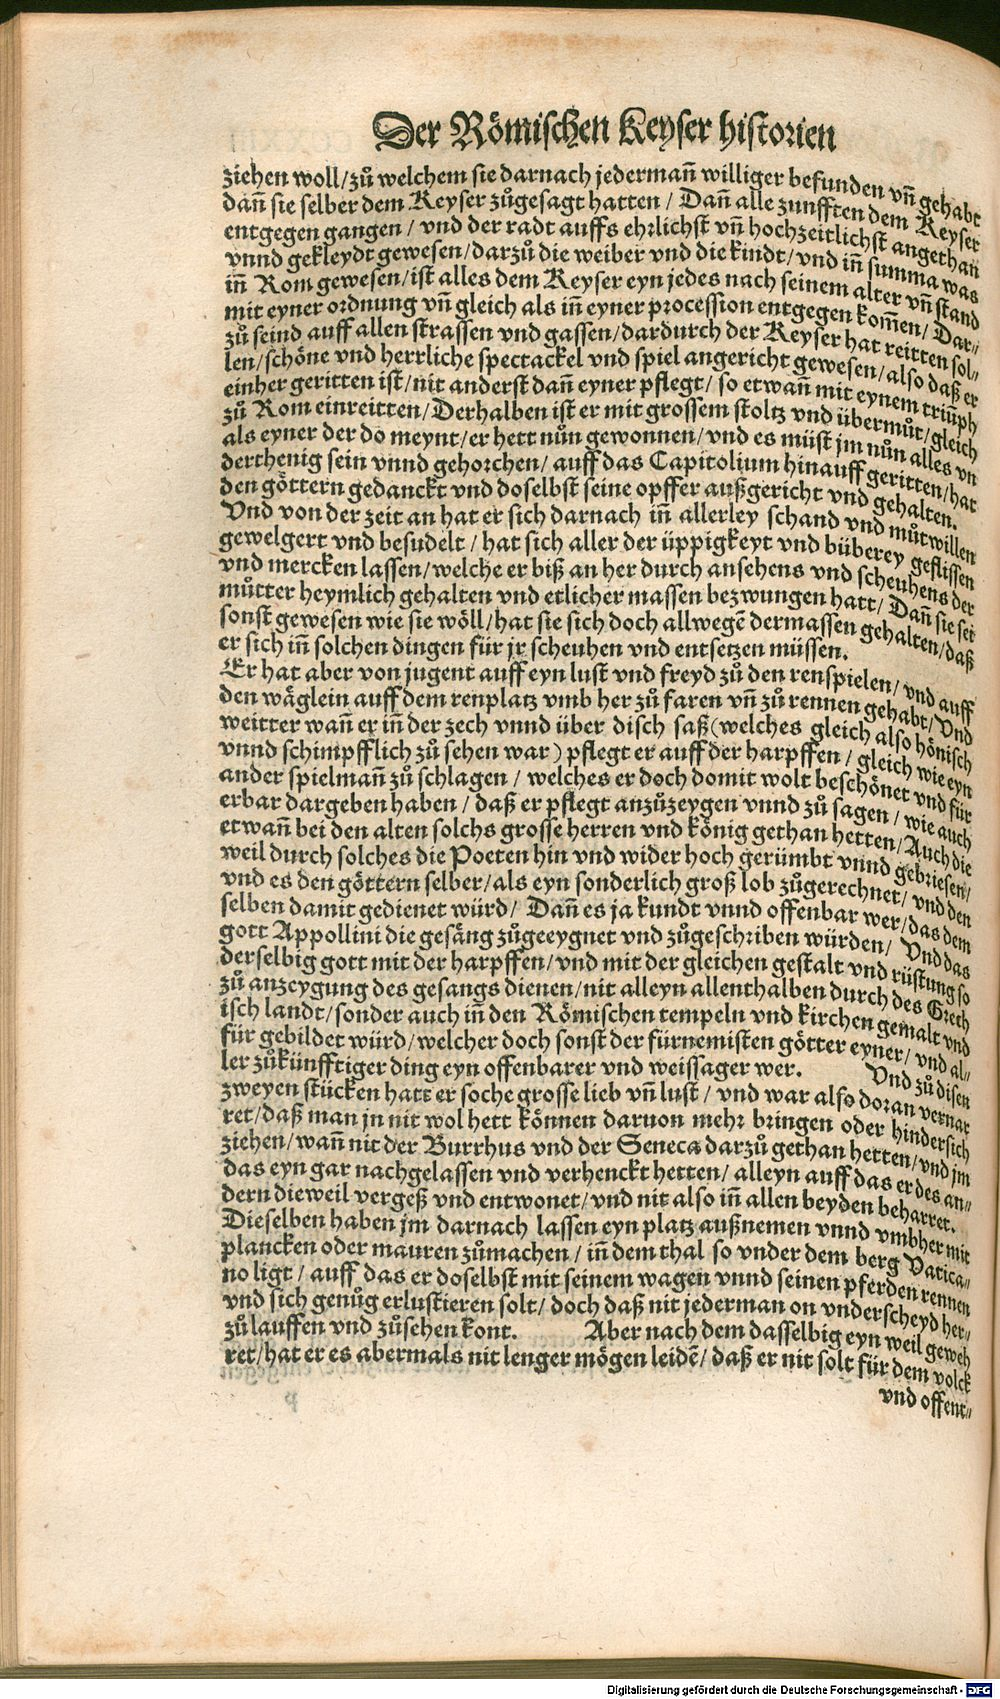 Der Römischen Keyser historien
ziehen woll/zů welchem sie darnach jedermañ williger befunden vñ gehabt
dañ sie selber dem Keyser zůgesagt hatten / Dañ alle zunfften dem Keyser
entgegen gangen / vnd der radt auffs ehrlichst vñ hochzeitlichst angethan
vnnd gekleydt gewesen/darzů die weiber vnd die kindt/vnd iñ summa was
iñ Rom gewesen/ist alles dem Keyser eyn jedes nach seinem alter vñ stand
mit eyner ordnung vñ gleich als iñ eyner procession entgegen kom̃en/ Dar⸗
zů seind auff allen strassen vnd gassen/dardurch der Keyser hat reitten sol⸗
len/schöne vnd herrliche spectackel vnd spiel angericht gewesen/also daß er
einher geritten ist/nit anderst dañ eyner pflegt/ so etwañ mit eynem triũph
zů Rom einreitten/Derhalben ist er mit grossem stoltz vnd übermůt/gleich
als eyner der do meynt/er hett nůn gewonnen/vnd es müst jm nůn alles vn
derthenig sein vnnd gehorchen/ auff das Capitolium hinauff geritten/hat
den göttern gedanckt vnd doselbst seine opffer außgericht vnd gehalten.
Vnd von der zeit an hat er sich darnach iñ allerley schand vnd můtwillen
gewelgert vnd besudelt / hat sich aller der üppigkeyt vnd büberey geflissen
vnd mercken lassen/welche er biß an her durch ansehens vnd scheuhens der
můtter heymlich gehalten vnd etlicher massen bezwungen hatt/ Dañ sie sei
sonst gewesen wie sie wöll/hat sie sich doch allwegẽ dermassen gehalten/daß
er sich iñ solchen dingen für jr scheuhen vnd entsetzen müssen.
Er hat aber von jugent auff eyn lust vnd freyd zů den renspielen/ vnd auff
den wäglein auff dem renplatz vmb her zů faren vñ zů rennen gehabt/ Vnd
weitter wañ er iñ der zech vnnd über disch saß (welches gleich also hönisch
vnnd schimpfflich zů sehen war) pflegt er auff der harpffen / gleich wie eyn
ander spielmañ zů schlagen / welches er doch domit wolt beschönet vnd für
erbar dargeben haben / daß er pflegt anzůzeygen vnnd zů sagen / wie auch
etwañ bei den alten solchs grosse herren vnd könig gethan hetten/Auch die
weil durch solches die Poeten hin vnd wider hoch gerümbt vnnd gebriesen/
vnd es den göttern selber/als eyn sonderlich groß lob zůgerechnet/ vnd den
selben damit gedienet würd/ Dañ es ja kundt vnnd offenbar wer/das dem
gott Appollini die gesäng zůgeeygnet vnd zůgeschriben würden/ Vnd das
derselbig gott mit der harpffen/vnd mit der gleichen gestalt vnd rüstung so
zů anzeygung des gesangs dienen/nit alleyn allenthalben durch des Grech
isch landt/sonder auch iñ den Römischen tempeln vnd kirchen gemalt vnd
für gebildet würd/welcher doch sonst der fürnemisten götter eyner/ vnd al⸗
ler zůkünfftiger ding eyn offenbarer vnd weissager wer. Vnd zů disen
zweyen stücken hatt er soche grosse lieb vñ lust / vnd war also doran vernar
ret/daß man jn nit wol hett können daruon mehr bringen oder hindersich
ziehen/wañ nit der Burrhus vnd der Seneca darzů gethan hetten/vnd jm
das eyn gar nachgelassen vnd verhenckt hetten/ alleyn auff das er des an⸗
dern dieweil vergeß vnd entwonet/vnd nit also iñ allen beyden beharret.
Dieselben haben jm darnach lassen eyn platz außnemen vnnd vmbher mit
plancken oder mauren zůmachen / iñ dem thal so vnder dem berg Vatica⸗
no ligt / auff das er doselbst mit seinem wagen vnnd seinen pferden rennen
vnd sich genůg erlustieren solt/ doch daß nit jederman on vnderscheyd her⸗
zů lauffen vnd zůsehen kont. Aber nach dem dasselbig eyn weil geweh
ret/hat er es abermals nit lenger mögen leidẽ/ daß er nit solt für dem volck
vnd offent⸗
Digitalisierung gefördert durch die Deutsche Forschungsgemeinschaft - DFG